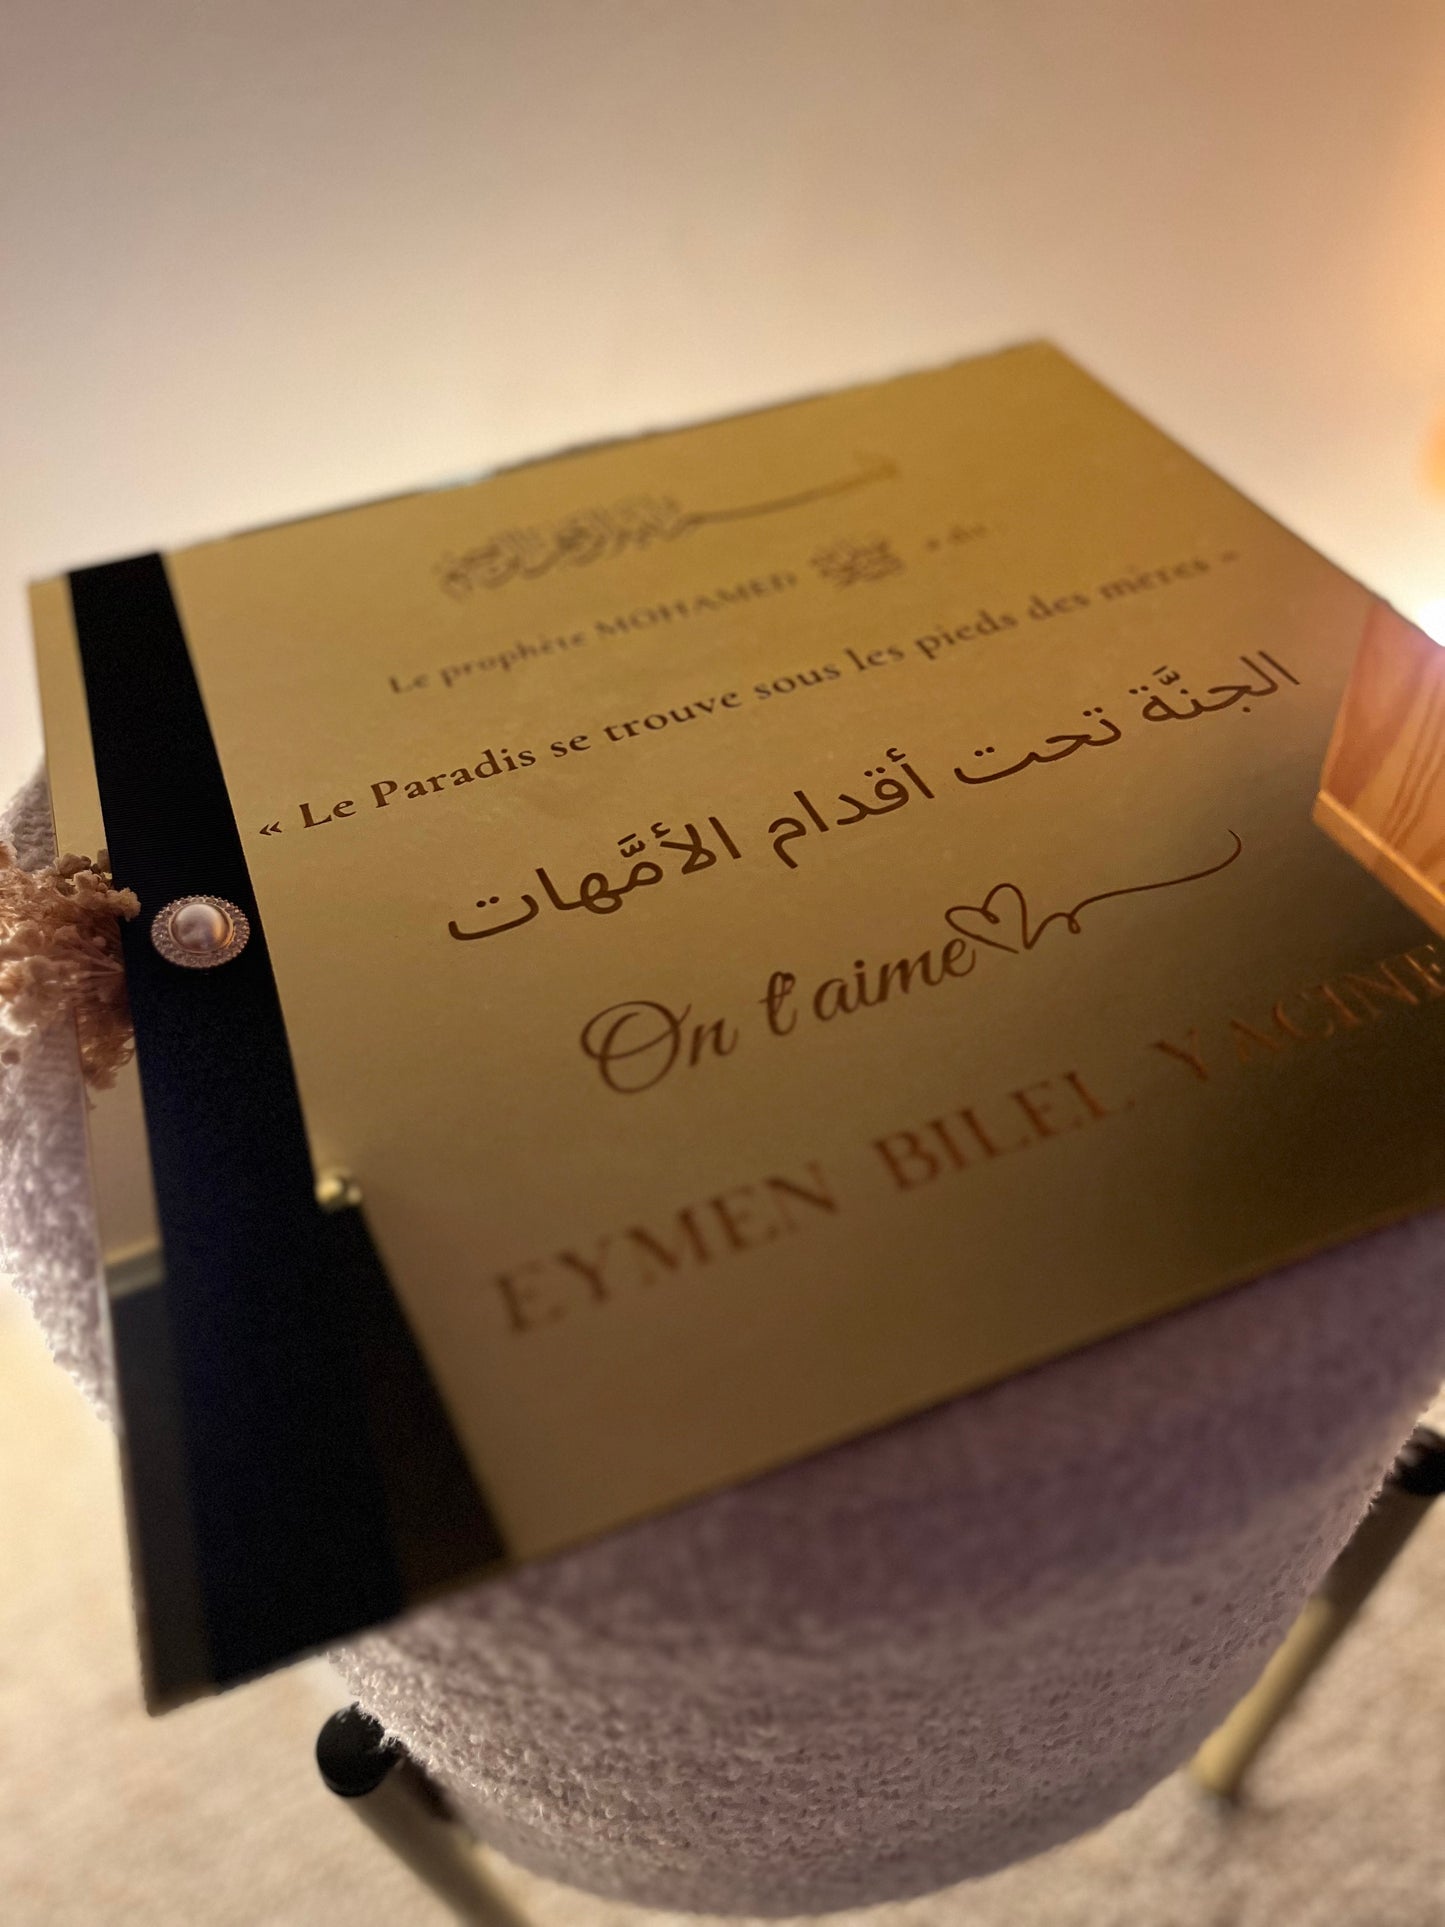 ﷽
Le prophète MOHAMED ﷺ a dit
« Le Paradis se trouve sous les pieds des mères »
الجنَّة تحت أقدام الأمَّهات
On t'aime
EYMEN BILEL YACINE